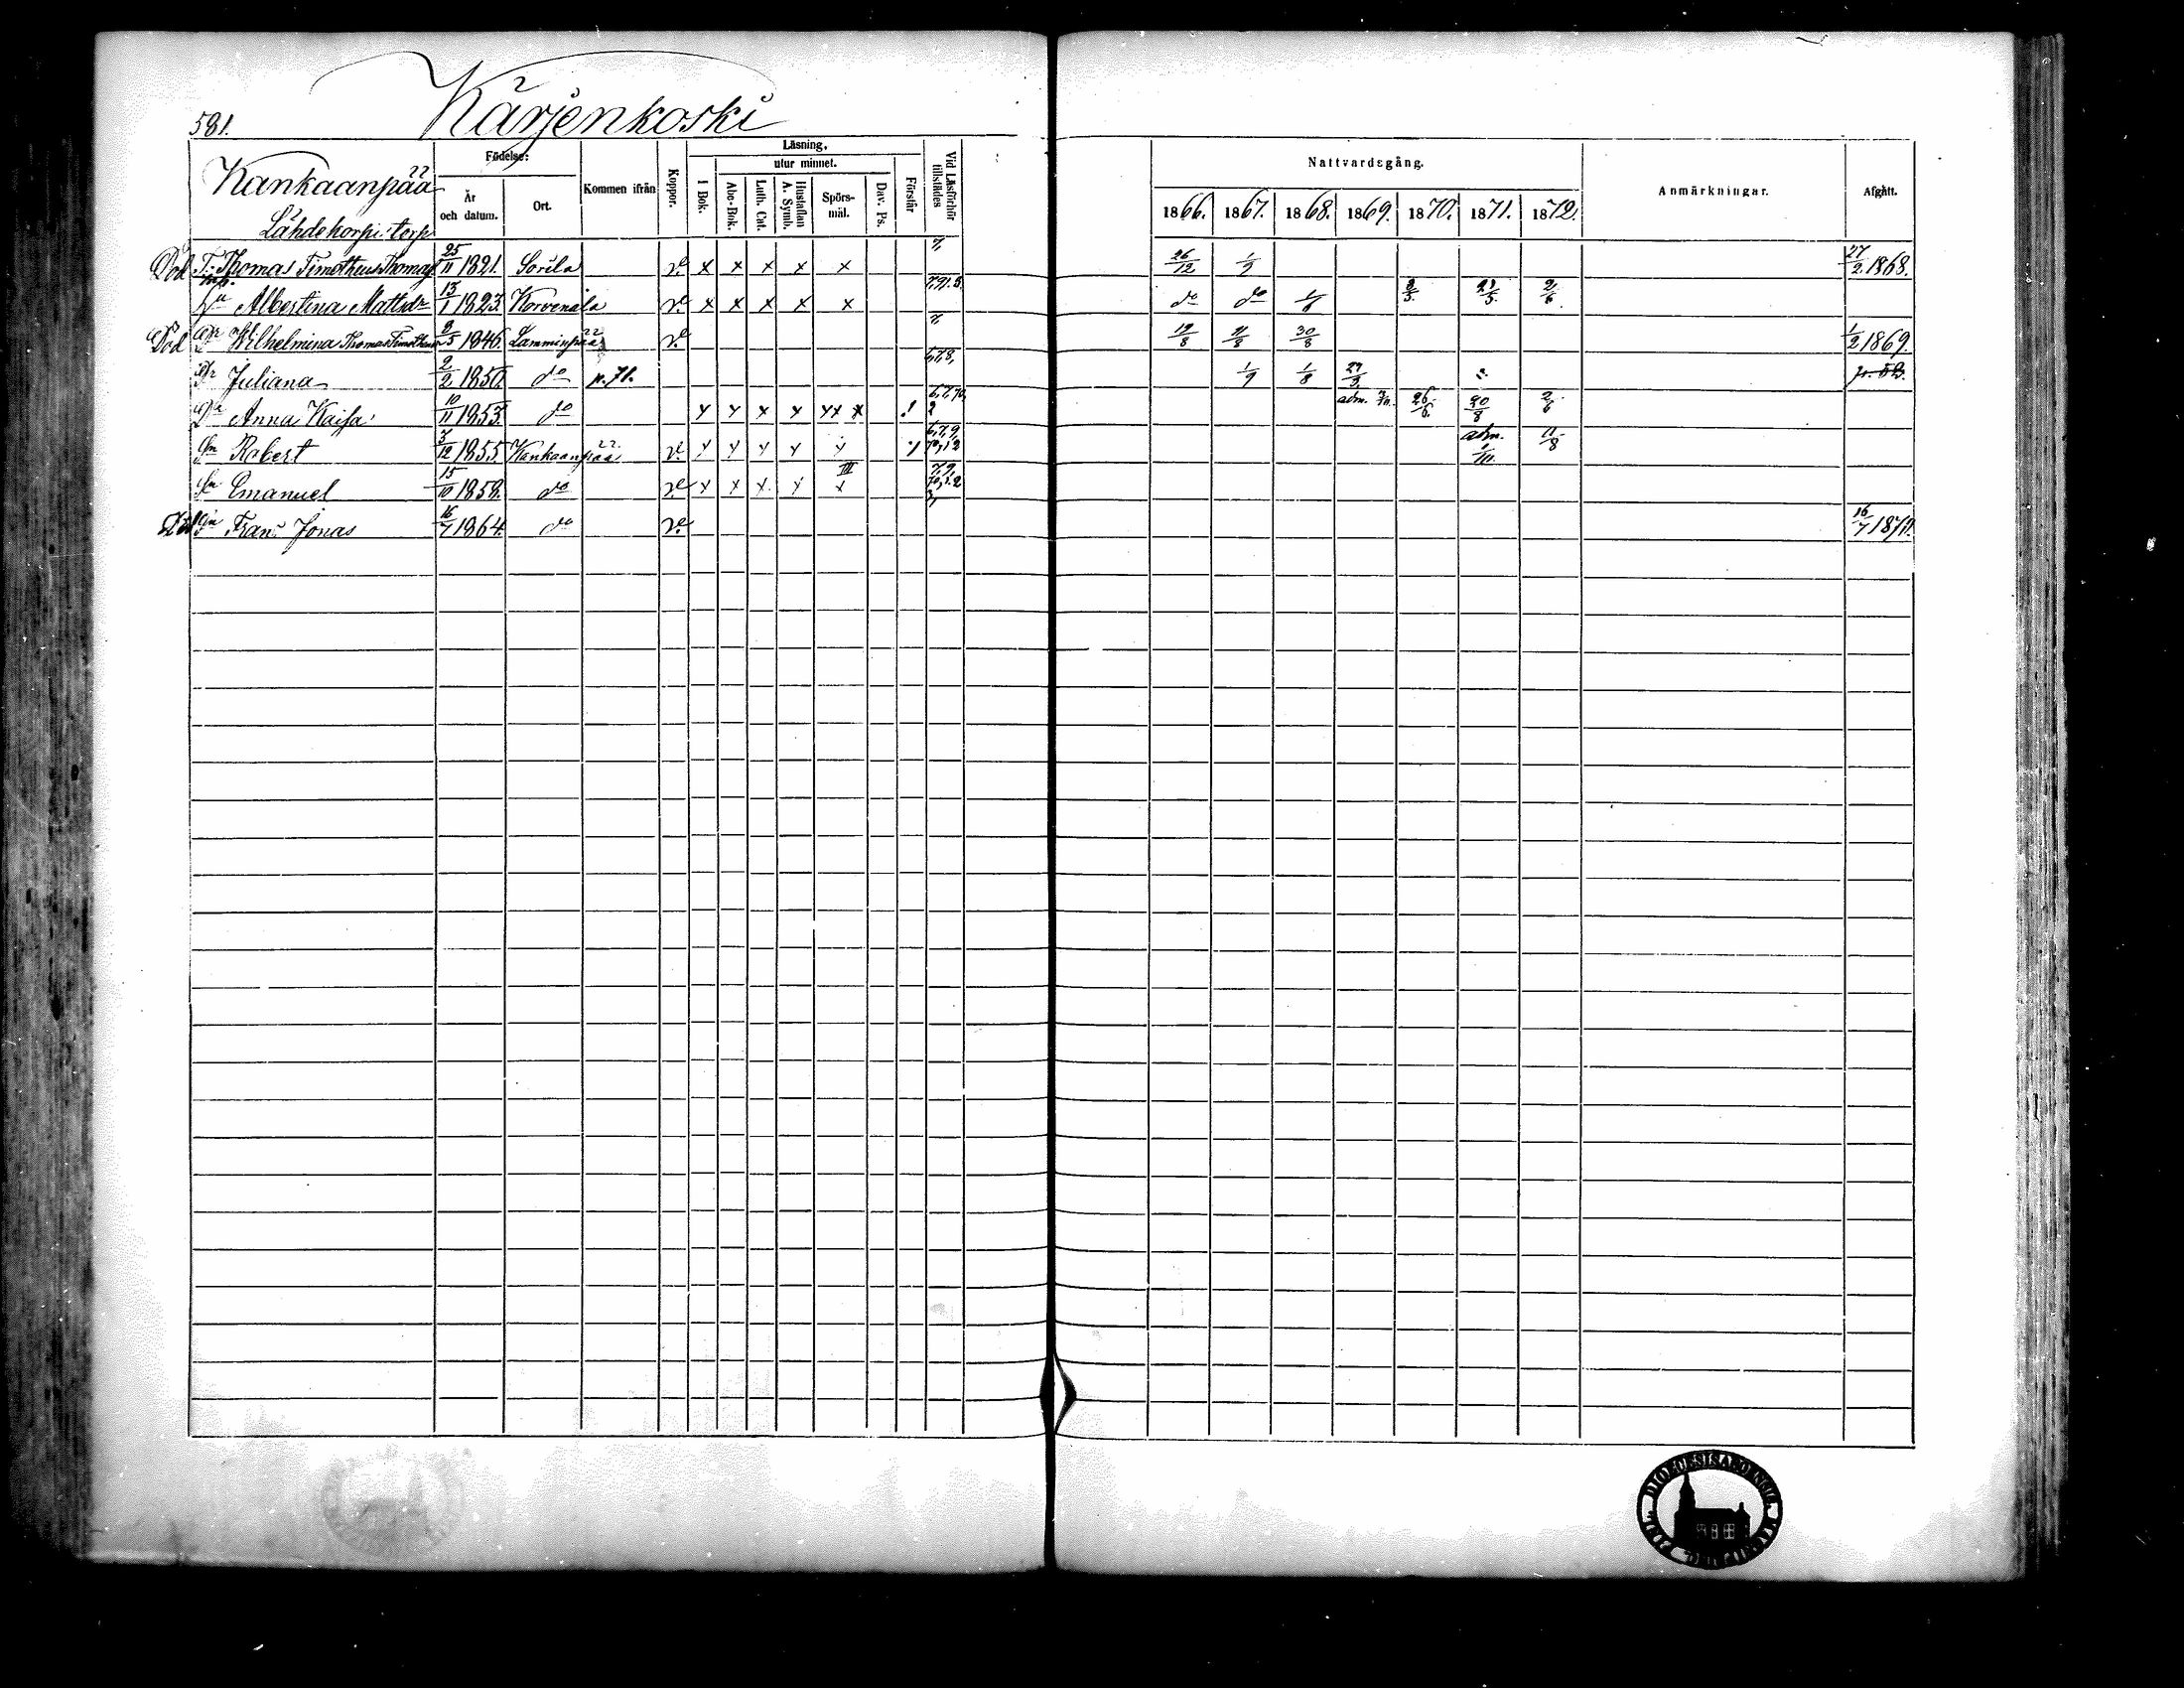 581. Kärjenkoski
Kankaanpää
Lähdekorpi torp
Födelse:
År och datum.
Ort.
Kommen ifrån
Koppor.
Läsning.
I Bok.
utur minnet.
Abc-Bok.
Luth. Cat.
Hustaflan A. Symb.
Spörsmål.
Dav. Ps.
Förstår
Vid Läsförhör tillstädes
Nattvardsgång.
1866. 1867. 1868. 1869. 1870. 1871. 1872.
Anmärkningar.
Afgått.
Död T. Thomas Timotheus Thomas 25/11 1821. Sorila v. x x x x x 7, 26/12 1/9 27/2 1868.
Albertina Mattsdr 13/1 1823. Korvenala v. x x x x x do do 2/6
Död Dr Wilhelmina Thomas Timotheus 1846. Lamminpää v. 7, 19/8 11/8 30/8 1/2 1869.
Dr Juliana 2/2 1850. do p. 71. 6,7,8, 1/9 1/8 p. 53.
Dr Anna Kaisa 10/11 1853. do x x x x xx x 6,7,70, 2 adm. 26/6. 20/8 2/6
Sn Robert 3/12 1855. Kankaanpää v. x x x x x 6,7,9, 70,12 adm. 1/10. 11/8
Sn Emanuel 15/10 1858. do v. x x x x III x 7,9, 70,1.2 3,
Död Sn Frans Jonas 16/7 1864. do v. 16/7 1871.
DIOECESIS ABOENSIS